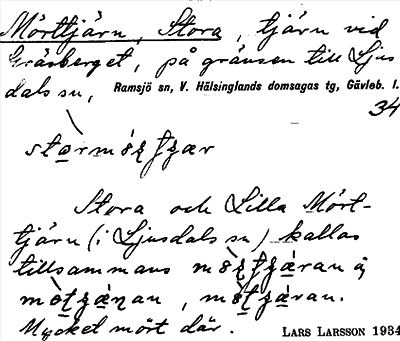 Mörttjärn, Stora, tjärn vid
Gräsberget, på gränsen till Ljus
dals sn, Ramsjö sn, V. Hälsinglands domsagas tg, Gävleb. l.
34
Stora och Lilla Mört-
tjärn (i Ljusdals sn) kallas
tillsammans
Mycket mört där. LARS LARSSON 1934